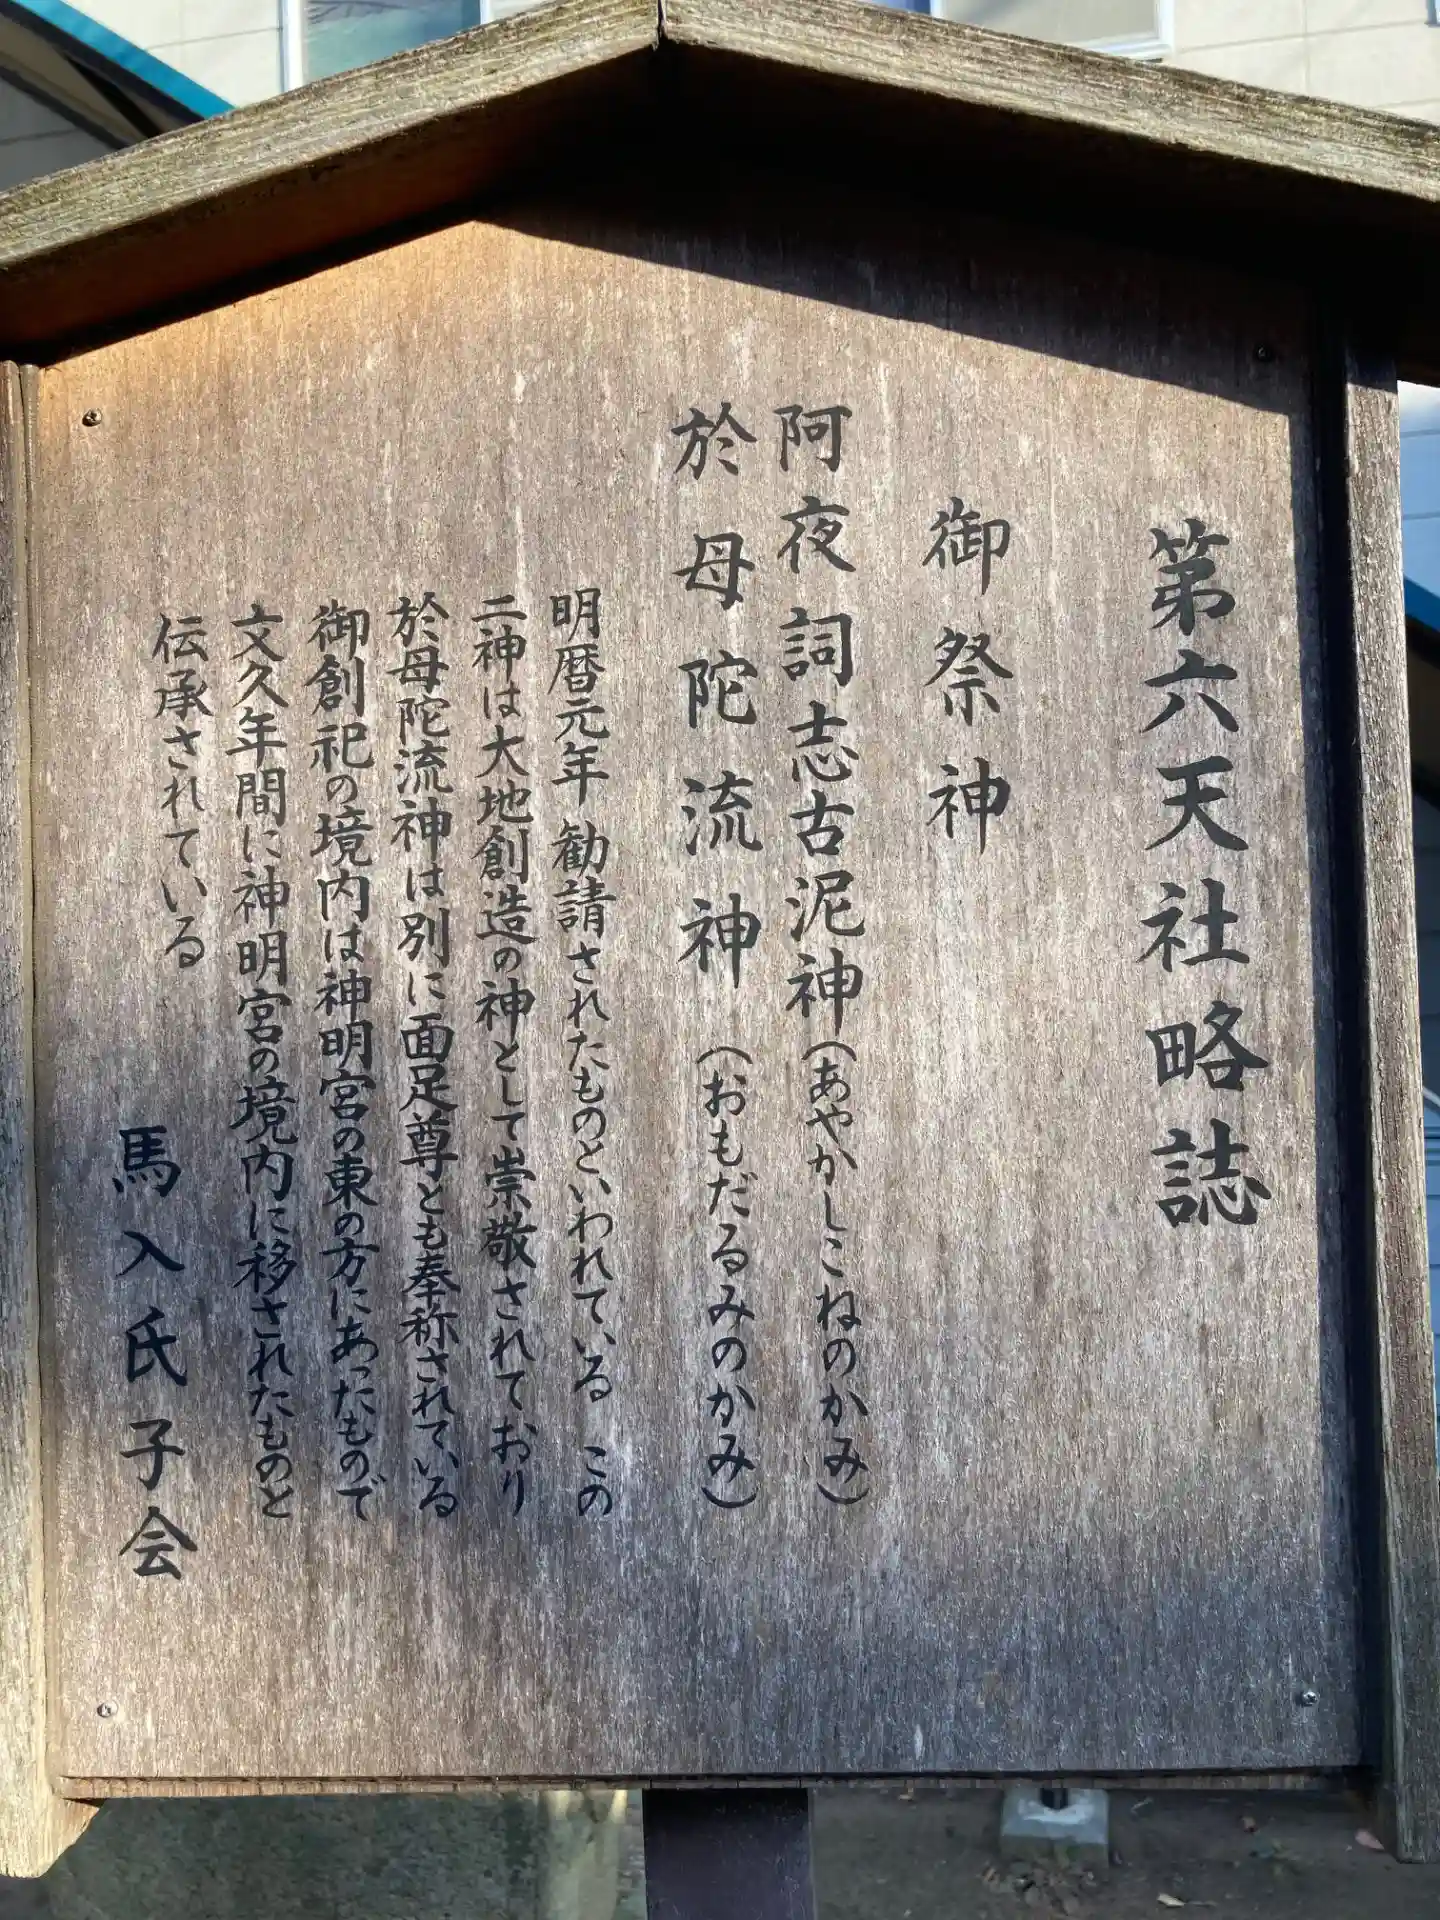 第六天社略誌
御祭神
阿夜訶志古泥神(あやかしこねのかみ)
於母陀流神(おもだるみのかみ)
明暦元年 勧請されたものといわれている この
二神は大地創造の神として崇敬されており
於母陀流神は別に面足尊とも奉称されている
御創祀の境内は神明宮の東の方にあったもので
文久年間に神明宮の境内に移されたものと
伝承されている
馬入氏子会